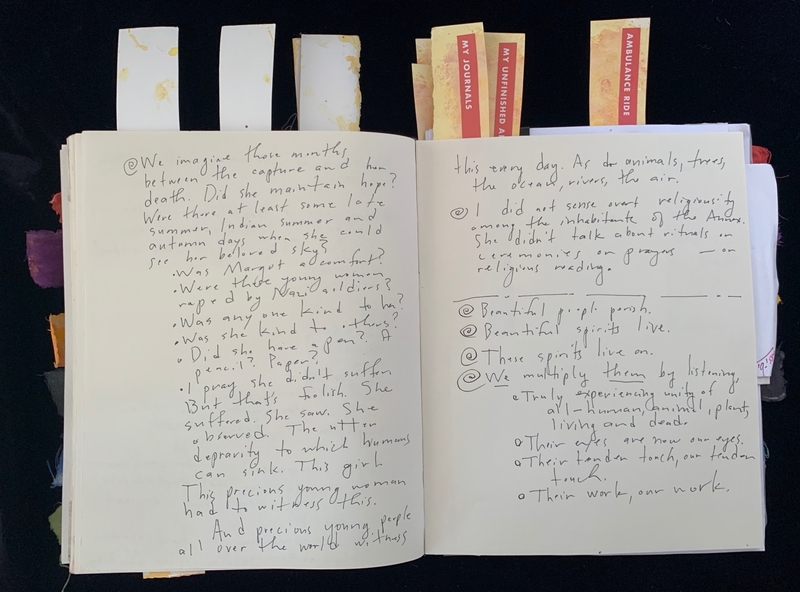 MY JOURNALS
MY UNFINISHED A
AMBULANCE RIDE
We imagine those months
between the capture and her
death. Did she maintain hope?
Were there at least some late
summer, Indian summer and
autumn days when she could
see her beloved sky?
• Was Margot a comfort?
• Were these young women
raped by Nazi soldiers?
• Was any one kind to her?
• Was she kind to others?
• Did she have a pen? A
pencil? Paper?
• I pray she didn't suffer.
But that's foolish. She
suffered. She saw. She
observed. The utter
depravity to which humans
can sink. This girl
This precious young woman
had to witness this.
And precious young people
all over the world witness
this every day. As do animals, trees,
the ocean, rivers, the air.
I did not sense overt religiosity
among the inhabitants of the Annex.
She didn't talk about rituals or
ceremonies or prayers — or
religious reading.
Beautiful people perish.
Beautiful spirits live.
These spirits live on.
We multiply them by listening,
Truly experiencing unity of
all - human, animal, plant,
living and dead.
Their eyes are now our eyes.
Their tender touch, our tender
touch.
Their work, our work.